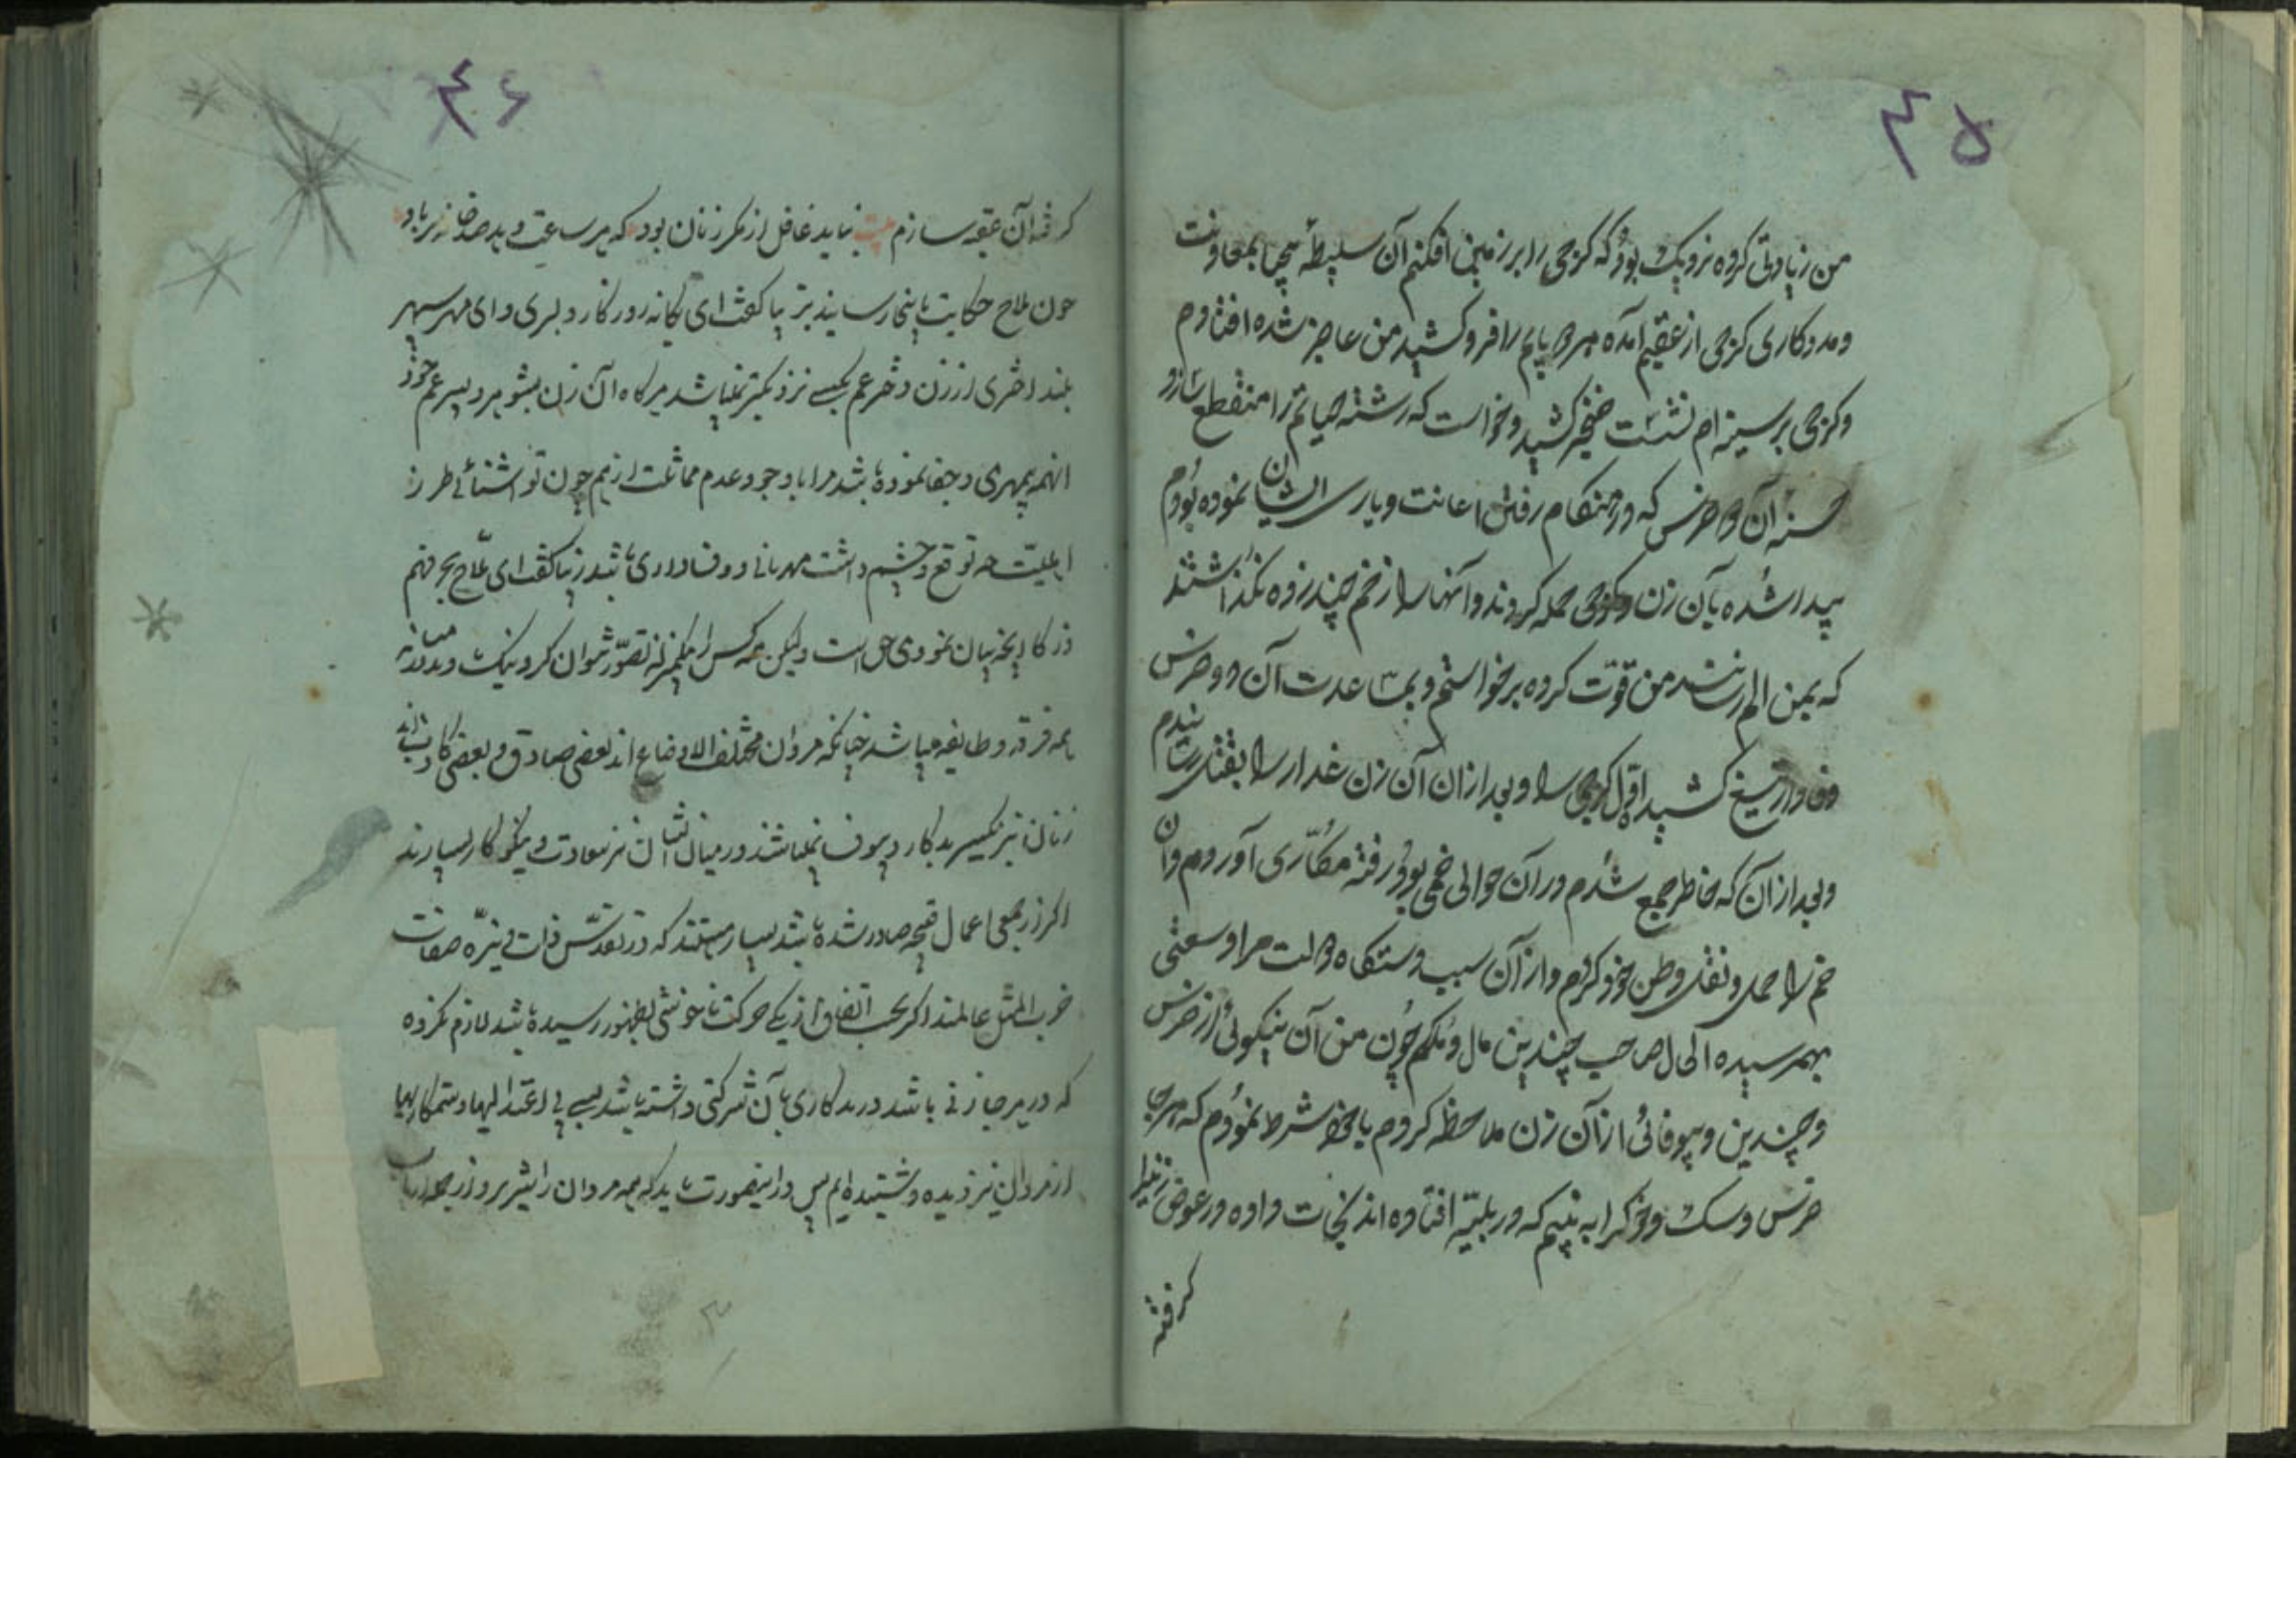 ٤٥
من زیادتی کرده نزدیک بود که کرجی را بر زمین افکنم آن سلیطهٔ بیحیا بمعاونت
و مددکاری کرجی از عقبم آمده هر دو پایم را فرو کشید من عاجز شده افتادم
و کرجی بر سینه ام نشست خنجر کشید و خواست که رشته حیاتم را منقطع سازد
آن دو خرس که در هنگام رفتن اعانت و یاری ایشان نموده بودم
پیدا شده بآن زن و کرجی حمله کردند و آنها را زخم چند زده نکذاشتند
که بمن الم رسانند من قوت کرده برخواستم و بمساعدت آن دو خرس
وفادار تیغ کشیده اول کرجی را و بعد از آن آن زن غدار را بقتل رسانیدم
و بعد از آن که خاطر جمع شدم در آن حوالی خمی بود رفته مکاری آوردم و آن
خم را حمل و نقل وطن خود کردم و از آن سبب دستکاه دولت مرا وسعتی
بهمرسیده الی الحال صاحب چندین مال و ملکم چون من آن نیکوئی از خرس
و چندین بیوفائی از آن زن ملاحظه کردم با خود شرط نمودم که هر جا
خرس و سک و خوک را به بینم که در بلیه افتاده اند نجات داده در عوض زنرا
کرفته
٤۶
کرفته آن عقبه سازم بیت نباید غافل از مکر زنان بود که هر ساعت دهد صد خانه بر باد
چون ملاح حکایت باینجا رسانید زیبا کفت ای یکانه روزکار دلبری و ای مهر سپهر
بلند اختری از زن دختر عم بکسی نزدیکتر نمیباشد هرکاه آن زن بشوهر و پسر عم خود
اینهمه بیمهری و جفا نموده باشد مرا با وجود عدم مماثلت از هم چون تو اشنائی طرز
اهلیت چه توقع و چشم داشت مهربانی و وفاداری باشد زیبا کفت ای ملاح بحر فهم
و ذکا اینچه بیان نمودی حق است و لیکن همه کس را بیکمنزله تصور نتوان کرد نیک و بد در میانه
همه فرقه و طایفه میباشد چنانکه مردان مختلف الاوضاع اند بعضی صادق و بعضی کاذب اند
زنان نیز یکسر بدکار و بیوفا نمیباشند در میان ایشان نیز سعادت و نیکوکار بسیارند
اکر از بعضی اعمال قبیحه صادر شده باشد بسیار هستند که در تقدس ذات و تنزه صفات
ضرب المثل عالمند اکر بحسب اتفاق از یکی حرکت ناخوشی بظهور رسیده باشد لازم نکرده
که در هر جا زنی باشد در بدکاری با آن شرکتی داشته باشد بسی بی اعتدالیها و ستمکاریها
از مردان نیز دیده و شنیده ایم پس در اینصورت باید که همه مردان را شریر و